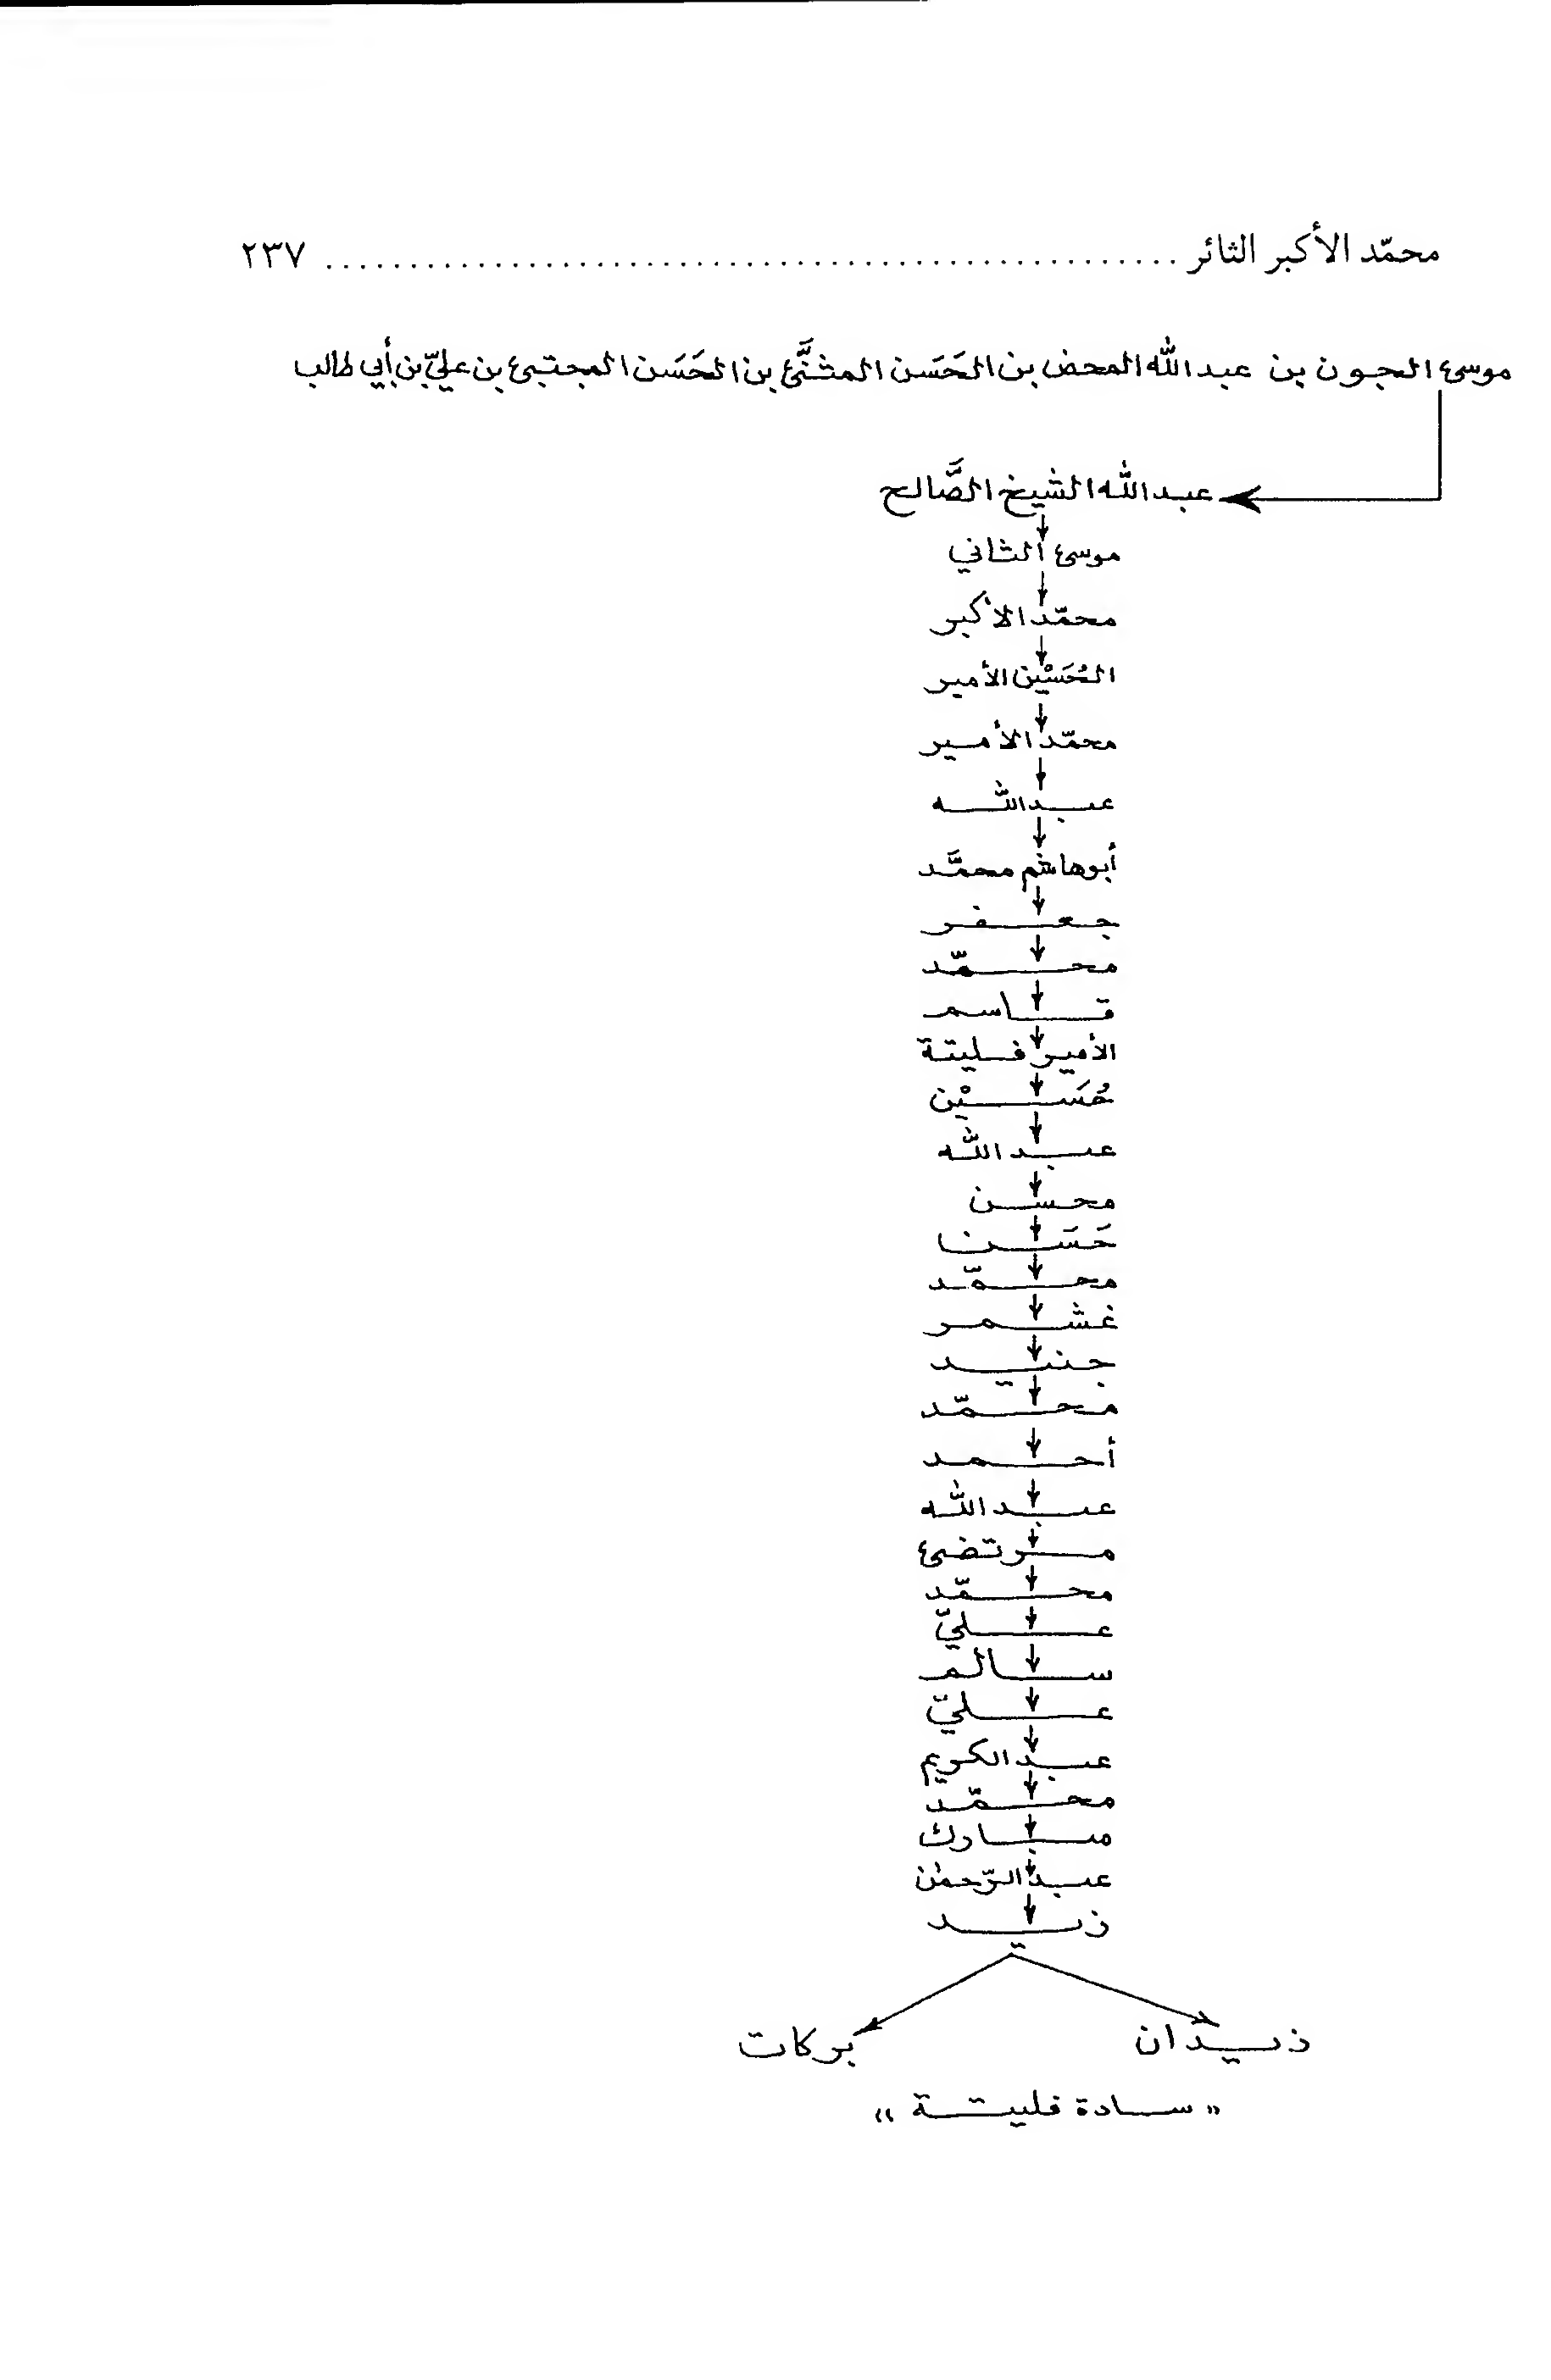 محمّد الأكبر الثائر ................................................... ٢٣٧
موسىٰ الجون بن عبدالله المحض بن الحَسَن المثنَّىٰ بن الحَسَن المجتبىٰ بن عليّ بن أبي طالب
عبدالله الشيخ الصَّالح
موسىٰ الثاني
محمّد الأكبر
الحُسَيْن الأمير
محمّد الأمير
عبدالله
أبوهاشم محمَّد
جعفر
محمّد
قاسم
الأمير فليتة
حُسَيْن
عبدالله
محسن
حَسَن
محمّد
غشمر
جنيد
محمّد
أحمد
عبدالله
مرتضىٰ
محمّد
عليّ
سالم
عليّ
عبدالكريم
محمّد
مبارك
عبدالرّحمٰن
زيد
زيدان بركات
« سادة فليتة »